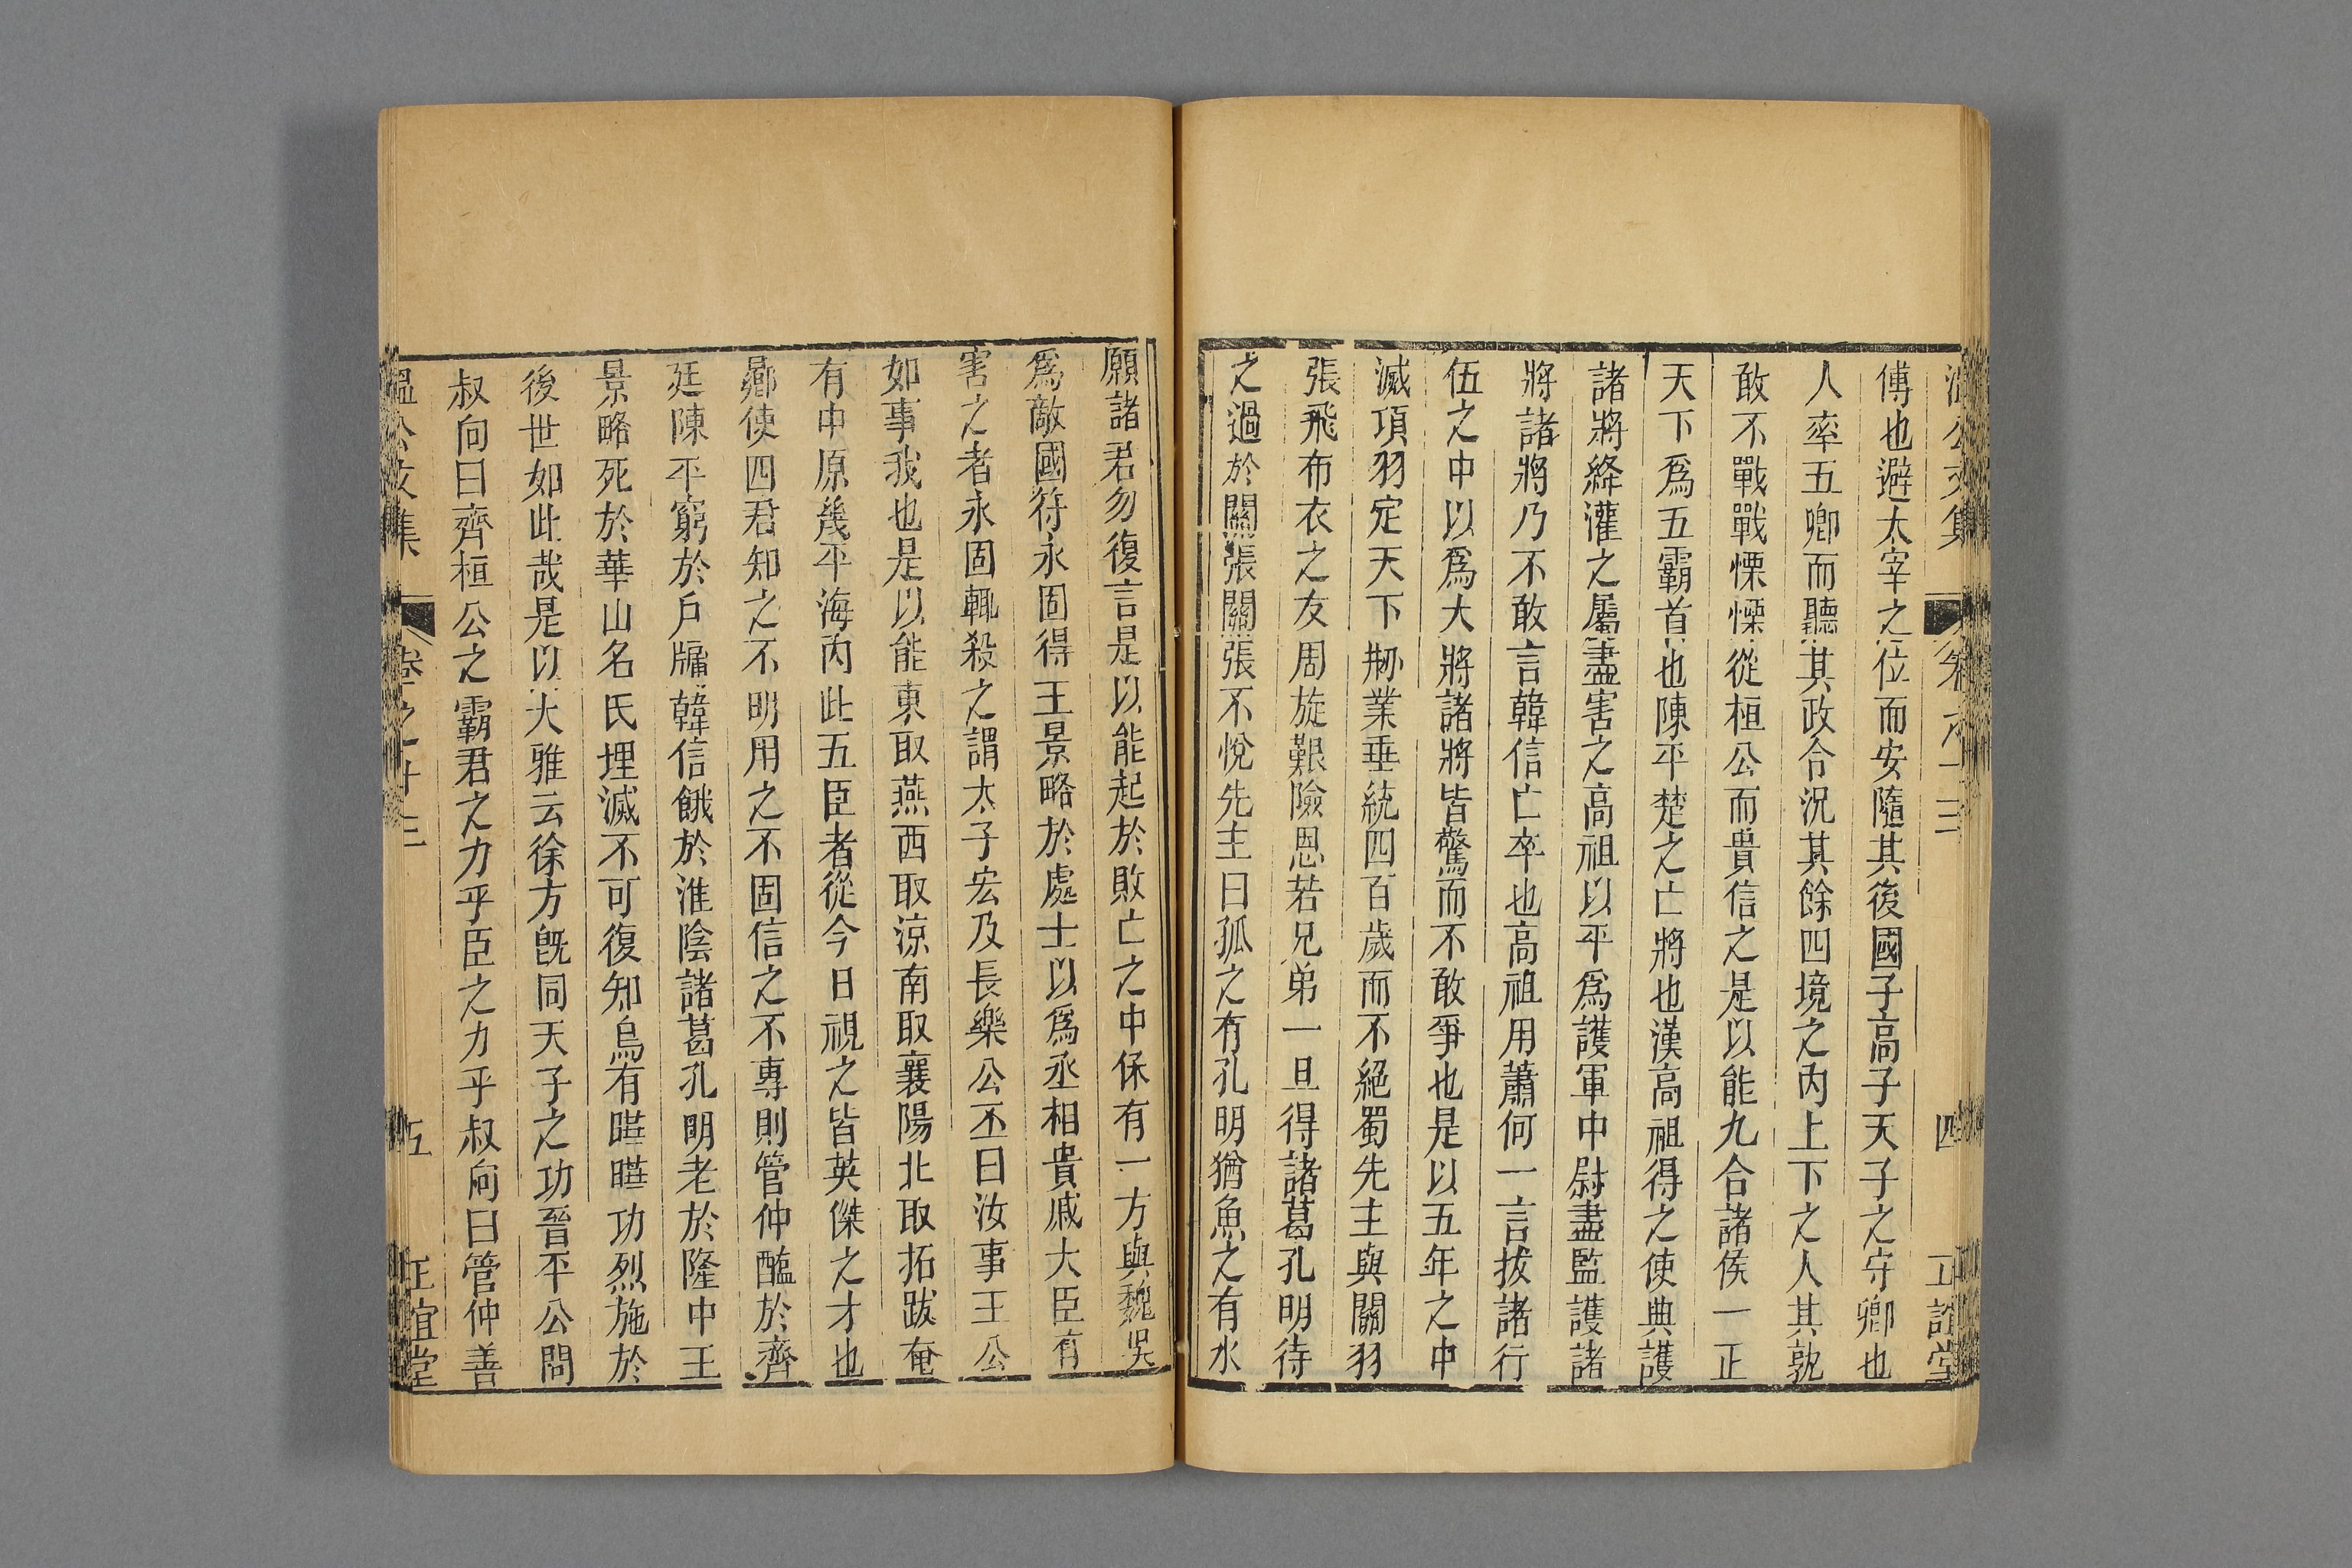 溫公文集 卷之十三 四 正誼堂
傅也避太宰之位而安隨其後國子高子天子之守卿也
人率五卿而聽其政令況其餘四境之內上下之人其孰
敢不戰戰慄慄從桓公而貴信之是以能九合諸侯一正
天下爲五霸首也陳平楚之亡將也漢高祖得之使典護
諸將絳灌之屬盡害之高祖以平爲護軍中尉盡監護諸
將諸將乃不敢言韓信亡卒也高祖用蕭何一言拔諸行
伍之中以爲大將諸將皆驚而不敢爭也是以五年之中
滅項羽定天下刱業垂統四百歲而不絕蜀先主與關羽
張飛布衣之友周旋艱險恩若兄弟一旦得諸葛孔明待
之過於關張關張不悅先主曰孤之有孔明猶魚之有水
願諸君勿復言是以能起於敗亡之中保有一方與魏吳
爲敵國符永固得王景略於處士以爲丞相貴戚大臣有
害之者永固輒殺之謂太子宏及長樂公丕曰汝事王公
如事我也是以能東取燕西取涼南取襄陽北取拓跋奄
有中原幾平海內此五臣者從今日視之皆英傑之才也
曏使四君知之不明用之不固信之不專則管仲醢於齊
廷陳平窮於戶牖韓信餓於淮陰諸葛孔明老於隆中王
景略死於華山名氏埋滅不可復知烏有曄曄功烈施於
後世如此哉是以大雅云徐方旣同天子之功晉平公問
叔向曰齊桓公之霸君之力乎臣之力乎叔向曰管仲善
溫公文集 卷之十三 五 正誼堂